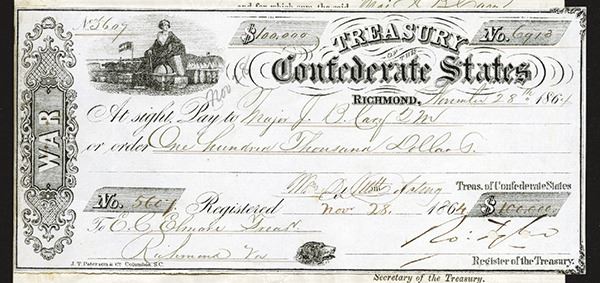 and for which sum the said
No. 5607
$100,000
TREASURY
OF THE
No. 6913
Confederate States
RICHMOND, November 28th 1864
WAR
At sight, Pay to Major J. B. Cary QM
or order One hundred Thousand Dollars.
Treas. of Confederate States
No. 5607 Registered Nov. 28. 1864 $100,000
To E. C. Elmore Treasr
Richmond Va
Register of the Treasury.
J. T. Paterson & Co. Columbia, S.C.
Secretary of the Treasury.